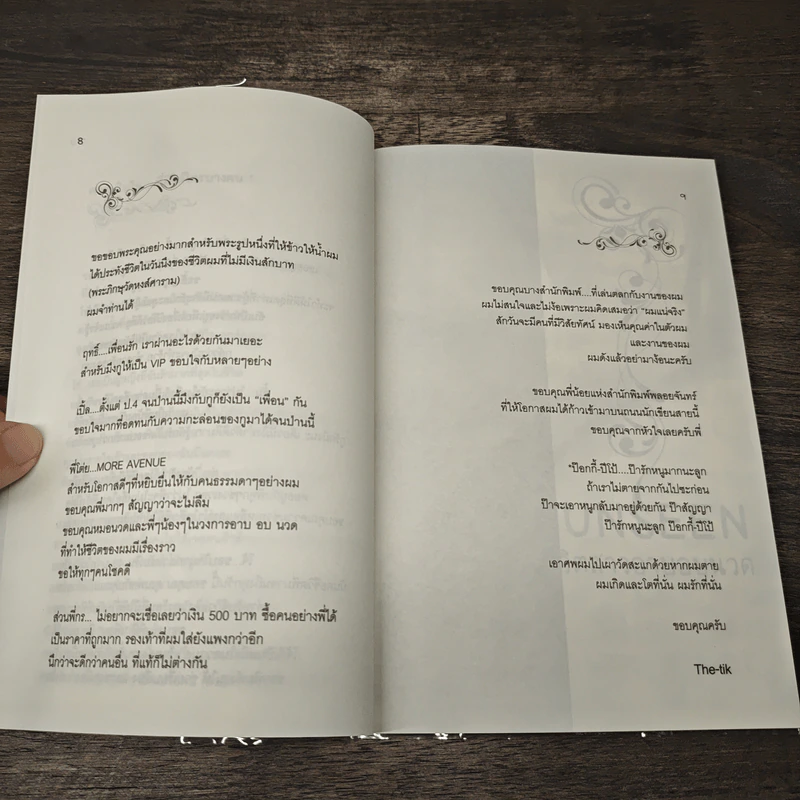 8
ขอขอบพระคุณอย่างมากสำหรับพระรูปหนึ่งที่ให้ข้าวให้น้ำผม
ได้ประทังชีวิตในวันนึงของชีวิตผมที่ไม่มีเงินสักบาท
(พระภิกษุวัดหงส์คาราม)
ผมจำท่านได้
ฤทธิ์....เพื่อนรัก เราผ่านอะไรด้วยกันมาเยอะ
สำหรับมึงกูให้เป็น VIP ขอบใจกับหลายๆอย่าง
เบิ้ล....ตั้งแต่ ป.4 จนป่านนี้มึงกับกูก็ยังเป็น “เพื่อน” กัน
ขอบใจมากที่อดทนกับความกะล่อนของกูมาได้จนป่านนี้
พี่โต่ย...MORE AVENUE
สำหรับโอกาสดีๆที่หยิบยื่นให้กับคนธรรมดาๆอย่างผม
ขอบคุณพี่มากๆ สัญญาว่าจะไม่ลืม
ขอบคุณหมอนวดและพี่ๆน้องๆในวงการอาบ อบ นวด
ที่ทำให้ชีวิตของผมมีเรื่องราว
ขอให้ทุกๆคนโชคดี
ส่วนพี่กร... ไม่อยากจะเชื่อเลยว่าเงิน 500 บาท ซื้อคนอย่างพี่ได้
เป็นราคาที่ถูกมาก รองเท้าที่ผมใส่ยังแพงกว่าอีก
นึกว่าจะดีกว่าคนอื่น ที่แท้ก็ไม่ต่างกัน
9
ขอบคุณบางสำนักพิมพ์....ที่เล่นตลกกับงานของผม
ผมไม่สนใจและไม่ง้อเพราะผมคิดเสมอว่า “ผมแน่จริง”
สักวันจะมีคนที่มีวิสัยทัศน์ มองเห็นคุณค่าในตัวผม
และงานของผม
ผมดังแล้วอย่ามาง้อนะครับ
ขอบคุณพี่น้อยแห่งสำนักพิมพ์พลอยจันทร์
ที่ให้โอกาสผมได้ก้าวเข้ามาบนถนนนักเขียนสายนี้
ขอบคุณจากหัวใจเลยครับพี่
“ป๊อกกี้-ปีโป้....ป๊ารักหนูมากนะลูก
ถ้าเราไม่ตายจากกันไปซะก่อน
ป๊าจะเอาหนูกลับมาอยู่ด้วยกัน ป๊าสัญญา
ป๊ารักหนูนะลูก ป๊อกกี้-ปีโป้
เอาศพผมไปเผาวัดสะแกด้วยหากผมตาย
ผมเกิดและโตที่นั่น ผมรักที่นั่น
ขอบคุณครับ
The-tik